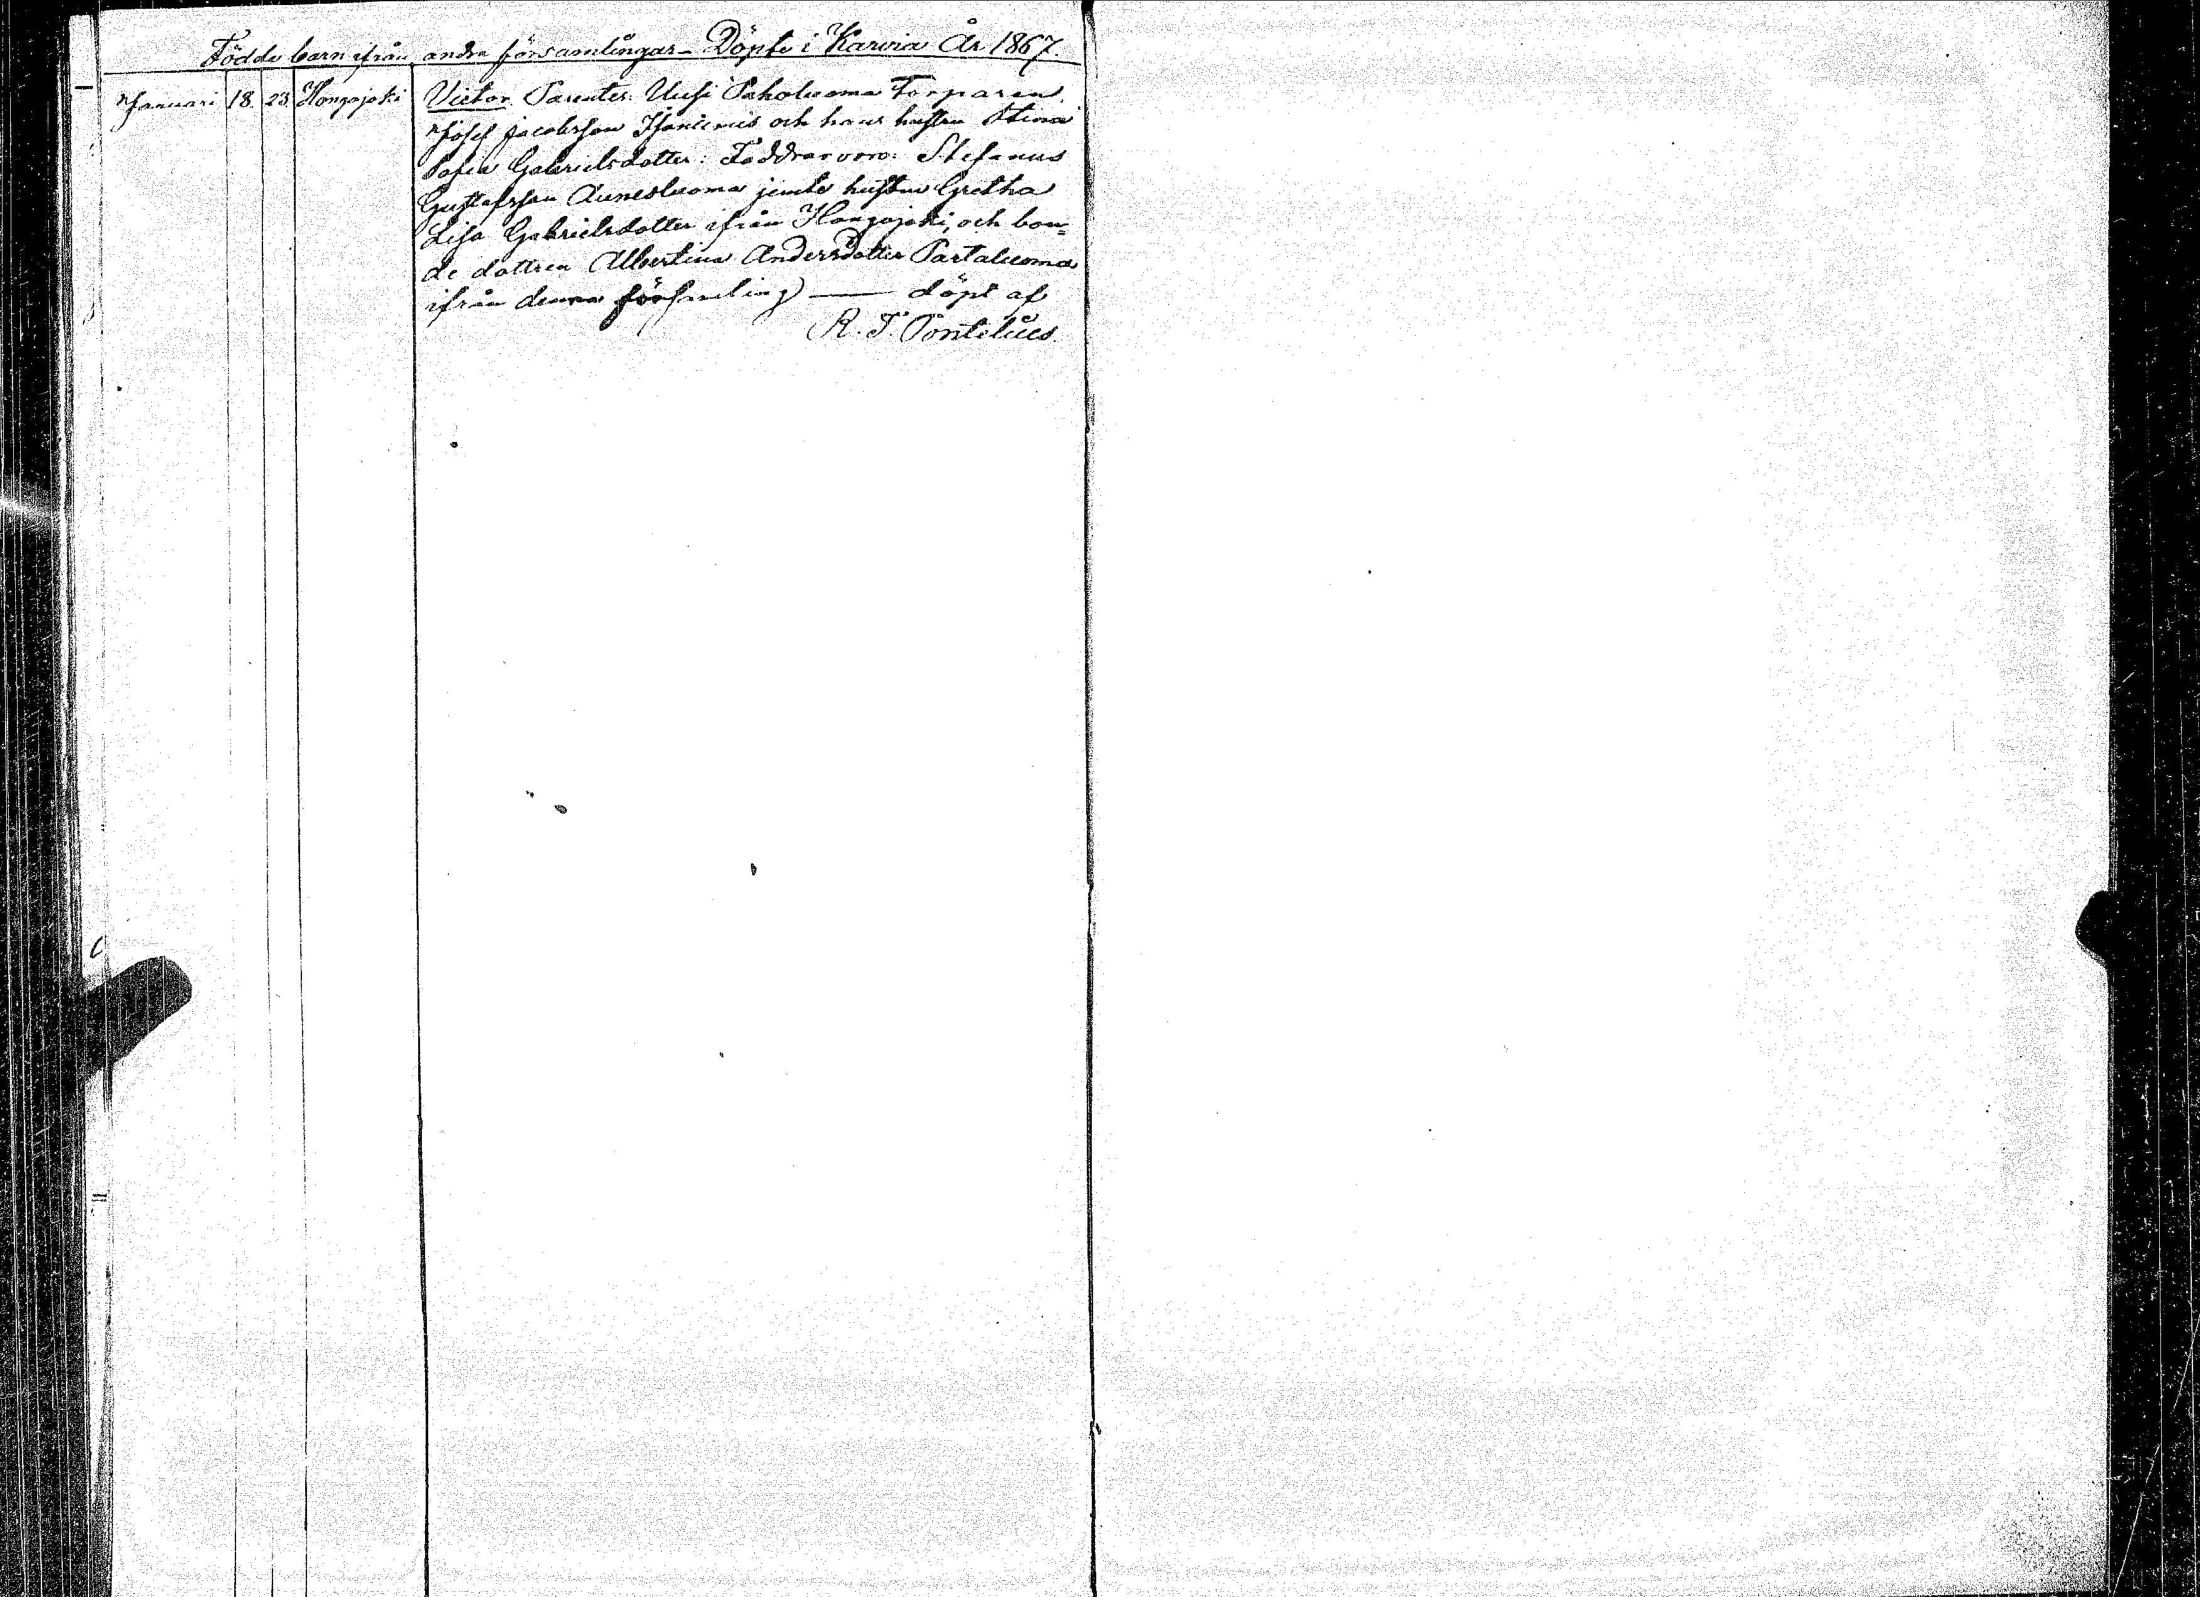 Födde barn ifrån andra församlingar – Döpte i Karvia År 1867.
Januari 18. 23. Hongojoki Victor. Parenter: Uusi Paholuoma Torparen
Josef Jacobsson Isoniemi och hans hustru Stina
Sofia Gabrielsdotter: Faddrar voro: Stefanus
Gustafsson Aunesluoma jemte hustru Gretha
Lisa Gabrielsdotter ifrån Hongojoki, och bon=
de dottren Albertina Andersdotter Partaluoma
ifrån denna församling — döpt af
R. T. Pontelius.